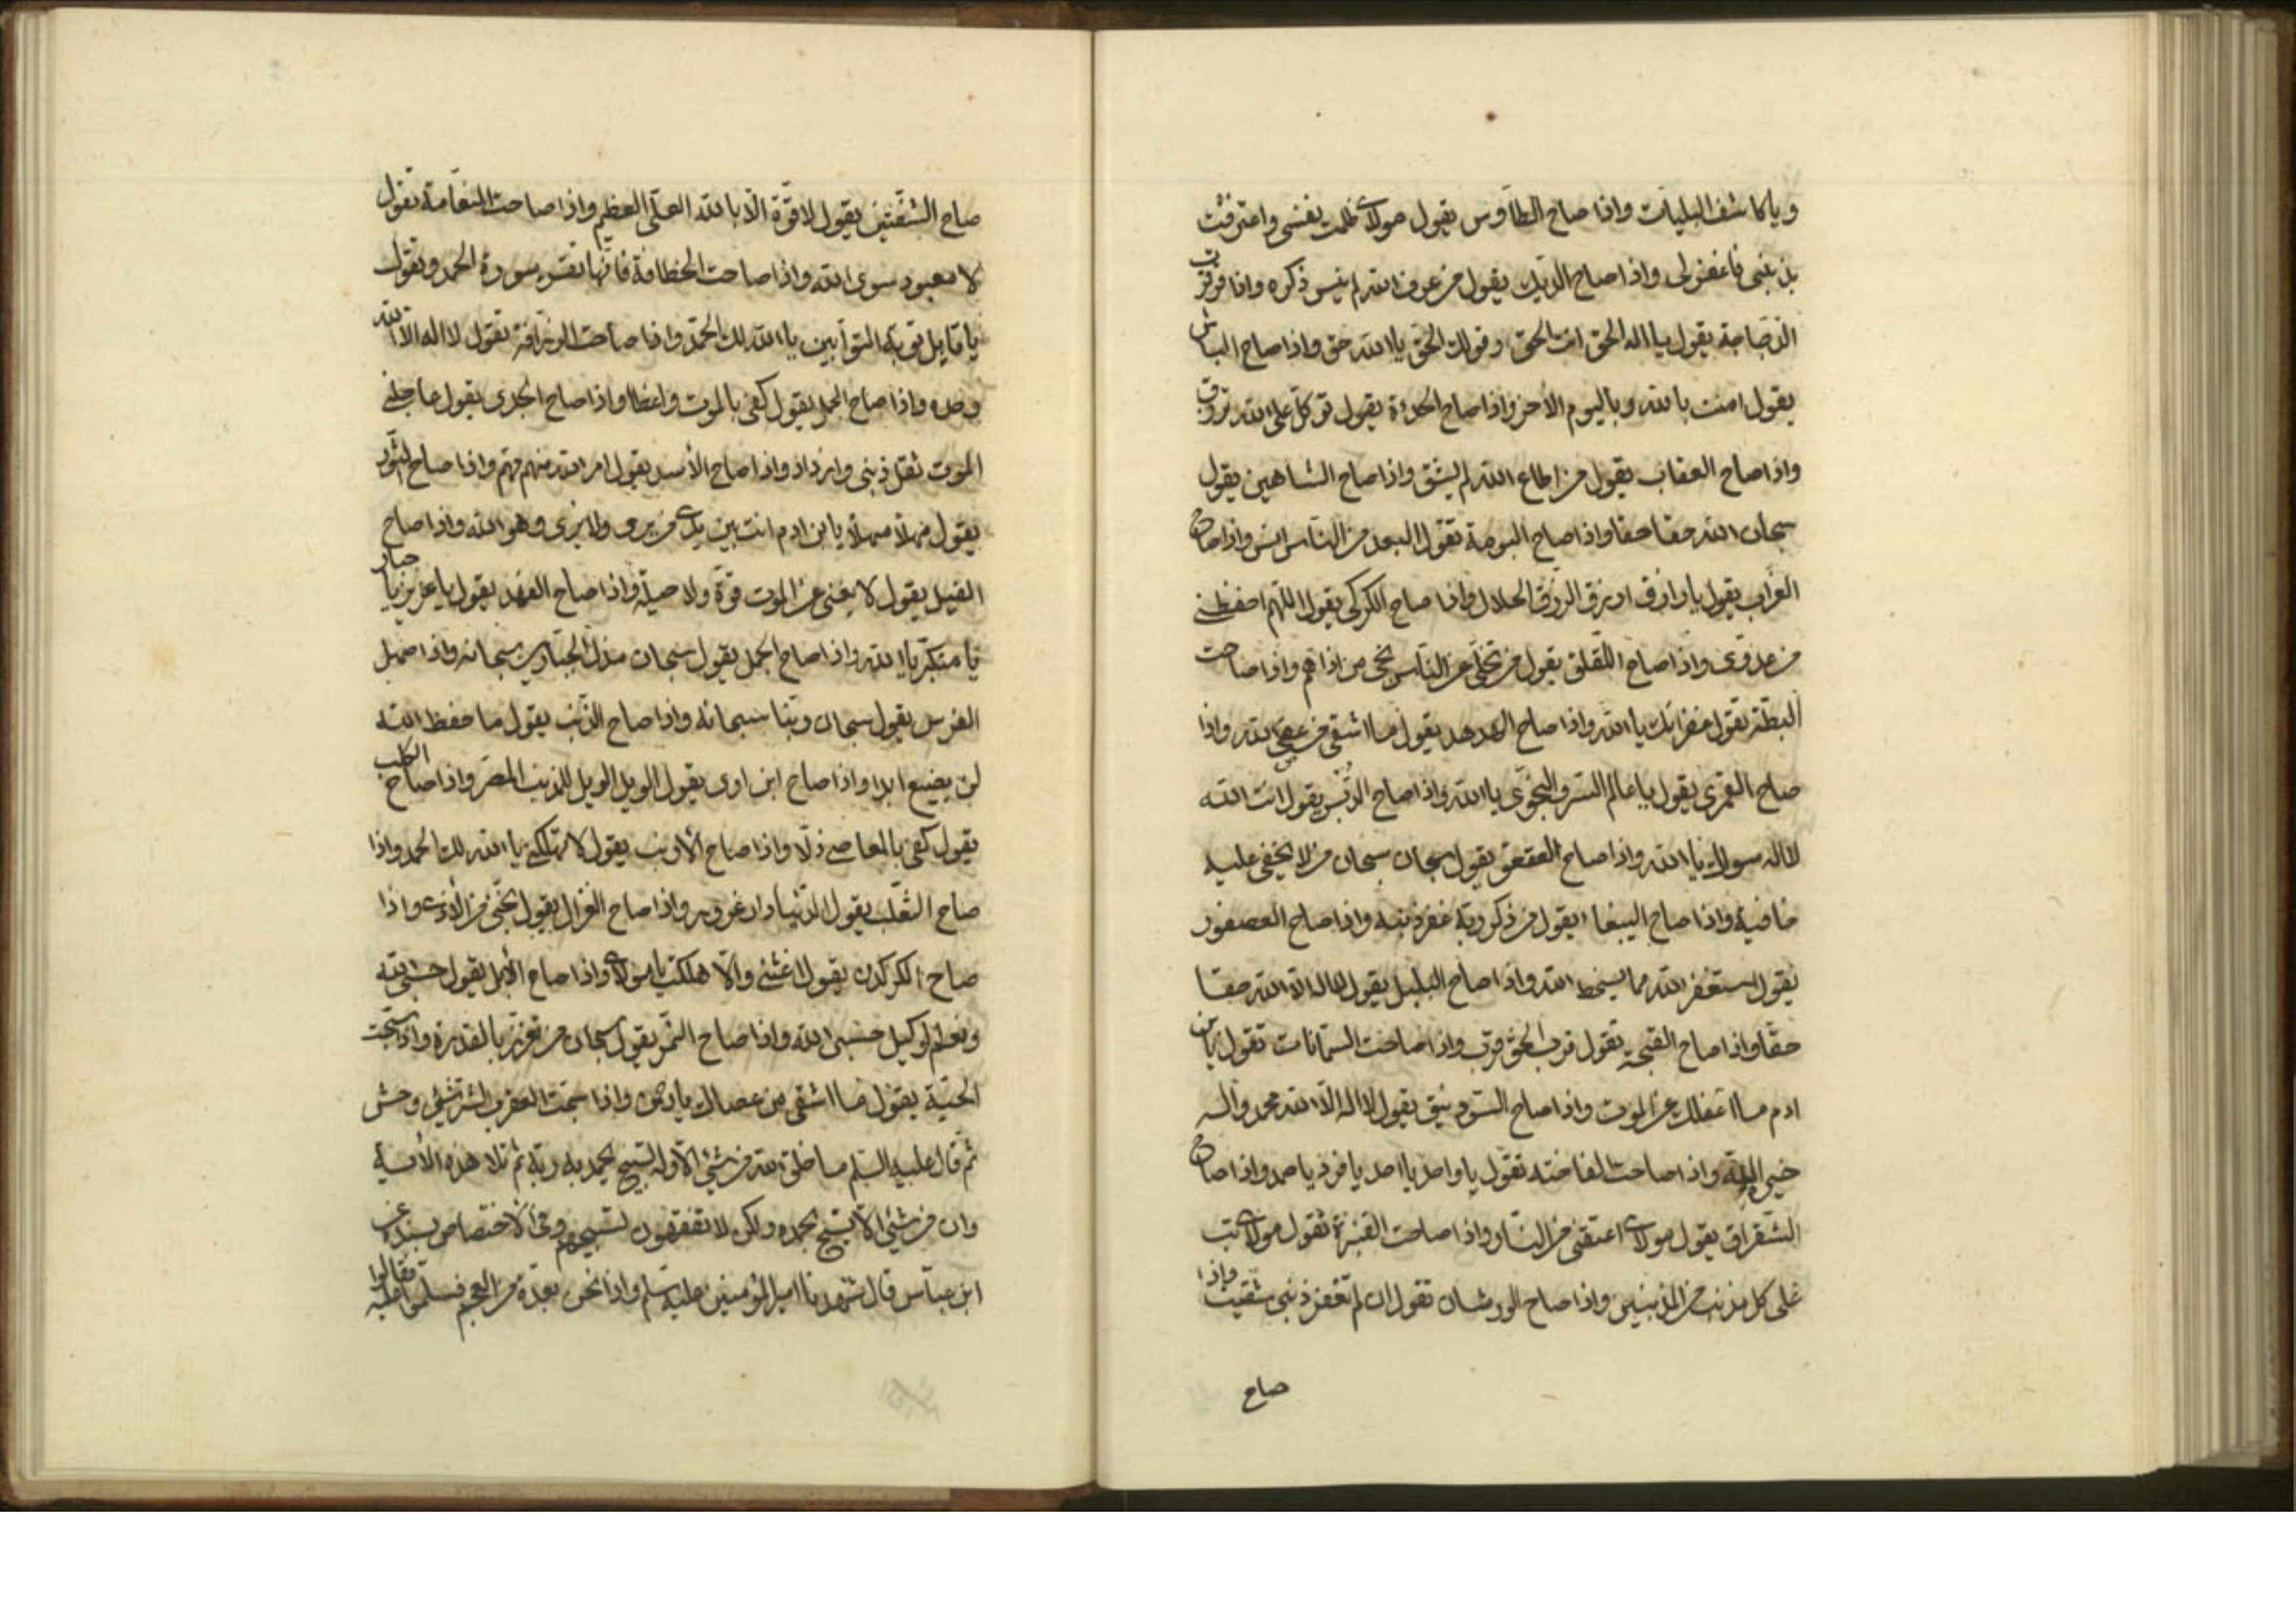 ويا كاشف البليات واذا صاح الطاوس يقول مولاى ظلمت نفسى واعترفت
بذنبى فاغفر لى واذا صاح الديك يقول من عرف الله لم ينس ذكره واذا قرقرت
الدجاجة يقول يا اله الحق انت الحق وقولك الحق يا الله حق واذا صاح الباشق
يقول امنت بالله وباليوم الأخر واذا صاح الحدءة يقول توكل على الله ترزق
واذا صاح العقاب يقول من اطاع الله لم يشق واذا صاح الشاهين يقول
سبحان الله حقا حقا واذا صاح البومة تقول البعد من الناس انس واذا صاح
الغراب يقول يا رازق ارزق الرزق الحلال واذا صاح الكركى يقول اللهم احفظنى
من عدوى واذا صاح اللقلق يقول من تخلى عن الناس نجى من اذاهم واذا صاحت
البطة تقول غفرانك يا الله واذا صاح الهدهد يقول ما اشقى من عصى الله واذا
صاح القمرى يقول يا عالم السر والنجوى يا الله واذا صاح الدبسى يقول انت الله
لا اله سواك يا الله واذا صاح العقعق يقول سبحان سبحان من لا يخفى عليه
خافية واذا صاح الببغاء يقول من ذكر ربه غفر ذنبه واذا صاح العصفور
يقول استغفر الله مما يسخط الله واذا صاح البلبل يقول لا اله الا الله حقا
حقا واذا صاح القبجة تقول قرب الحق قرب واذا صاحت السمانات تقول يابن
ادم ما اغفلك عن الموت واذا صاح السوذنيق يقول لا اله الا الله محمد واله
خيرة الله واذا صاحت الفاخته تقول يا واحد يا احد يا فرد يا صمد واذا صاح
الشقراق يقول مولاى اعتقنى من النار واذا صاحت القنبرة تقول مولاى تب
على كل مذنب من المذنبين واذا صاح الورشان تقول ان لم تغفر ذنبى شقيت واذا
صاح
صاح الشفنين يقول لا قوة الا بالله العلى العظيم واذا صاحت النعامة تقول
لا معبود سوى الله واذا صاحت الخطافة فانها تقرء سورة الحمد وتقول
يا قابل توبة التوابين يا الله لك الحمد واذا صاحت الزرافة تقول لا اله الا الله
وحده واذا صاح الحمل يقول كفى بالموت واعظا واذا صاح الجدى يقول عاجلنى
الموت ثقل ذنبى وازداد واذا صاح الأسد يقول امر الله مهم مهم واذا صاح الثور
يقول مهلا مهلا يابن ادم انت بين يدى من يرى ولا يرى وهو الله واذا صاح
الفيل يقول لا يغنى عن الموت قوة ولا حيلة واذا صاح الفهد يقول يا عزيز يا جبار
يا متكبر يا الله واذا صاح الجمل يقول سبحان مذل الجبارين سبحانه واذا صهل
الفرس يقول سبحان ربنا سبحانه واذا صاح الذئب يقول ما حفظ الله
لن يضيع ابدا واذا صاح ابن اوى يقول الويل الويل للمذنب المصر واذا صاح الكلب
يقول كفى بالمعاصى ذلا واذا صاح الأرنب يقول لا تهلكنى يا الله لك الحمد واذا
صاح الثعلب يقول الدنيا دار غرور واذا صاح الغزال يقول نجنى من الأذى واذا
صاح الكركدن يقول اغثنى والا هلكت يا مولاى واذا صاح الأيل يقول حسبى الله
ونعم الوكيل حسبى الله واذا صاح النمر يقول سبحان من تعزز بالقدرة واذا سبحت
الحية يقول ما اشقى من عصاك يا رحمن واذا سبحت العقرب الشر شئ وحش
ثم قال عليه السلم ما خلق الله من شئ الا وله تسبيح يحمد به ربه ثم تلا هذه الأية
وان من شئ الا يسبح بحمده ولكن لا تفقهون تسبيحهم وفى الأختصاص بسنده عن
ابن عباس قال شهدنا امير المؤمنين عليه سلم واذا نحن بعدة من العجم فسلموا عليه فقالوا